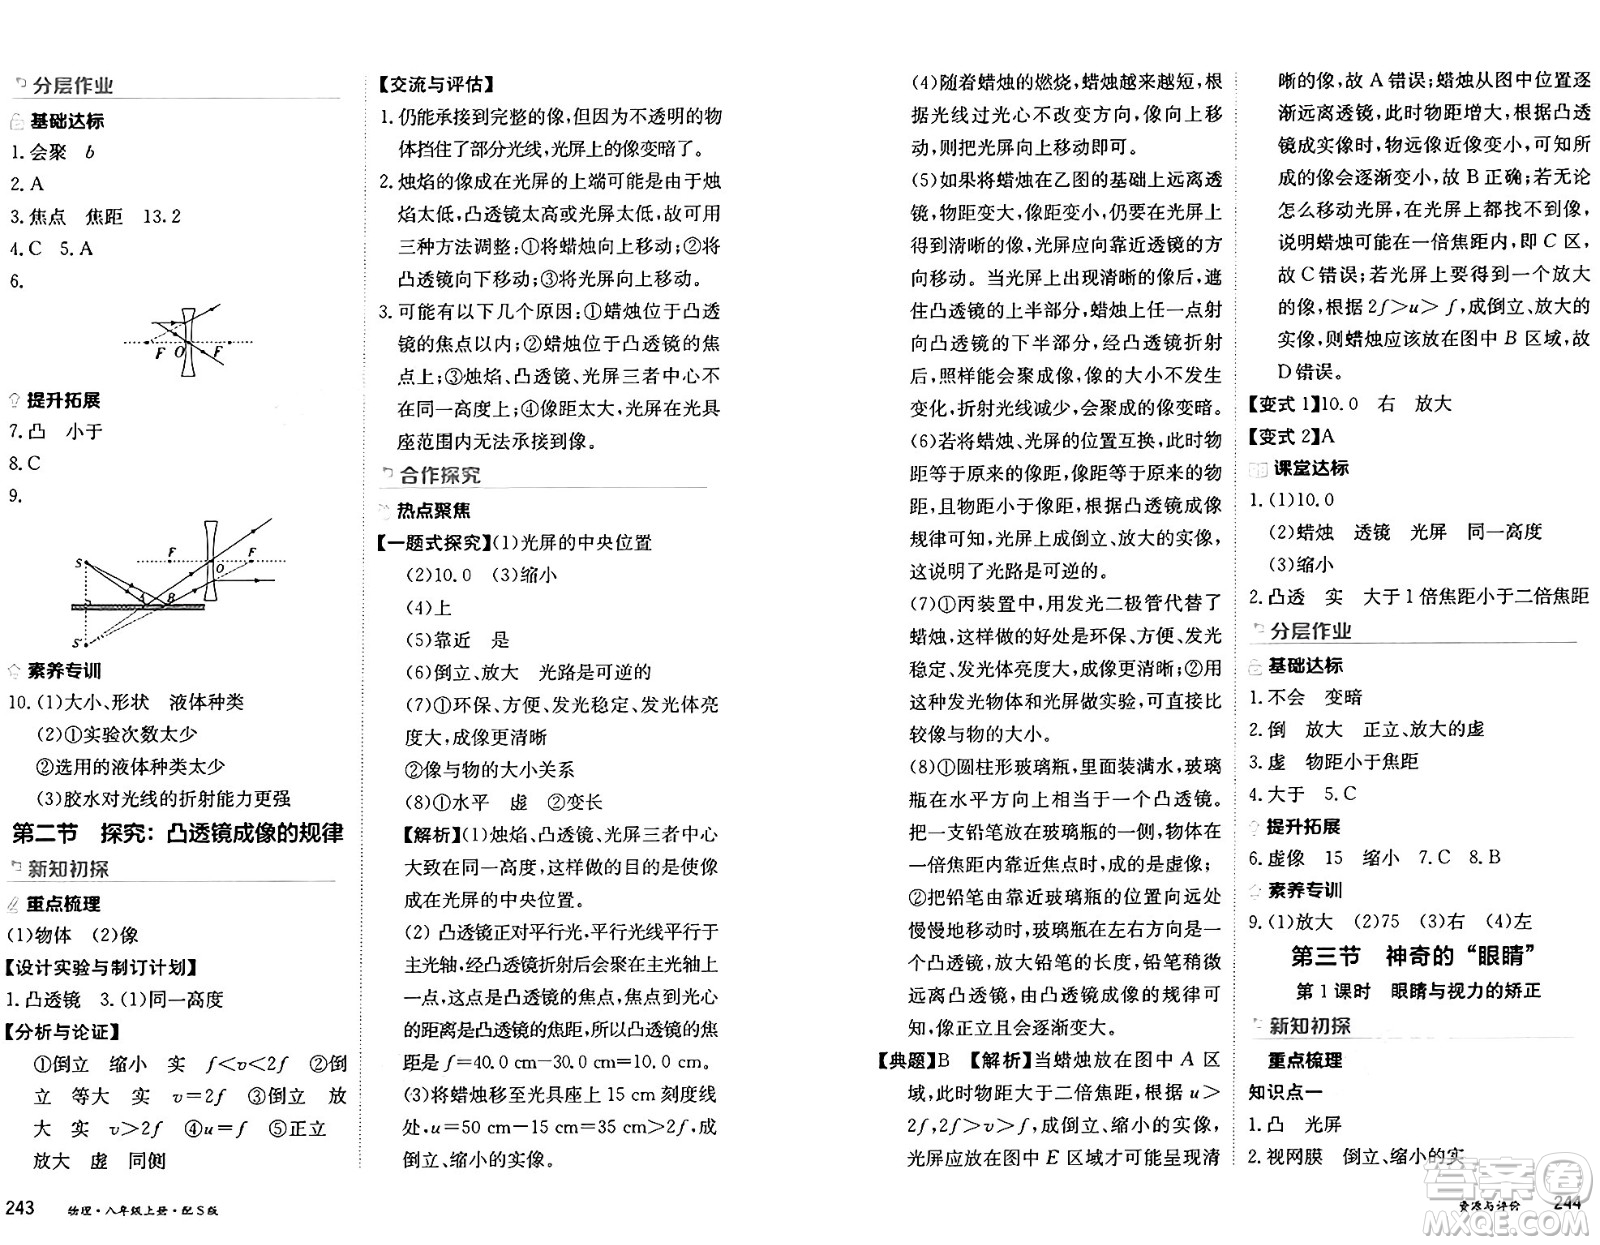 分层作业
基础达标
1.会聚 b
2.A
3.焦点 焦距 13.2
4.C 5.A
6.
F O F
提升拓展
7.凸 小于
8.C
9.
S F F O
A B
S′
素养专训
10.(1)大小、形状 液体种类
(2)①实验次数太少
②选用的液体种类太少
(3)胶水对光线的折射能力更强
第二节 探究：凸透镜成像的规律
新知初探
重点梳理
(1)物体 (2)像
【设计实验与制订计划】
1.凸透镜 3.(1)同一高度
【分析与论证】
①倒立 缩小 实 f＜v＜2f ②倒
立 等大 实 v＝2f ③倒立 放
大 实 v＞2f ④u＝f ⑤正立
放大 虚 同侧
243 物理·八年级上册·配S版
【交流与评估】
1.仍能承接到完整的像,但由于不透明的物
体挡住了部分光线,光屏上的像变暗了。
2.烛焰的像成在光屏的上端可能是由于烛
焰太低,凸透镜太高或光屏太低,故可用
三种方法调整:①将蜡烛向上移动;②将
凸透镜向下移动;③将光屏向上移动。
3.可能有以下几个原因:①蜡烛位于凸透
镜的焦点以内;②蜡烛位于凸透镜的焦
点上;③烛焰、凸透镜、光屏三者中心不
在同一高度上;④像距太大,光屏在光具
座范围内无法承接到像。
合作探究
热点聚焦
【一题式探究】(1)光屏的中央位置
(2)10.0 (3)缩小
(4)上
(5)靠近 是
(6)倒立、放大 光路是可逆的
(7)①环保、安全、发光稳定、发光体亮
度大,成像清晰
②像与物的大小关系
(8)①水平 虚 ②变长
【解析】(1)烛焰、透镜、光屏三者中心
大致在同一高度,这样做的目的是使像
成在光屏的中央位置。
(2) 凸透镜正对平行光,平行光线平行于
主光轴,经凸透镜折射后会聚在主光轴上
一点,这点是凸透镜的焦点,焦点到光心
的距离是凸透镜的焦距,所以凸透镜的焦
距是f＝40.0 cm－30.0 cm＝10.0 cm。
(3)将蜡烛移至光具座上15 cm刻度线
处,u＝50 cm－15 cm＝35 cm＞2f,成
倒立、缩小的实像。
(4)随着蜡烛的燃烧,蜡烛越来越短,根
据光线过光心不改变方向,像向上移
动,则把光屏向上移动即可。
(5)如果将蜡烛在乙图的基础上远离透
镜,物距变大,像距变小,仍要在光屏上
得到清晰的像,光屏应向靠近透镜的方
向移动。当光屏上出现清晰的像后,遮
住凸透镜的上半部分,蜡烛上任一点射
向凸透镜的光,经凸透镜的下半部分折射
后,照样能会聚成像,像的大小不发生
变化,折射光线减少,会聚成的像变暗。
(6)若将蜡烛、光屏的位置互换,此时物
距等于原来的像距,像距等于原来的物
距,且物距小于像距。根据凸透镜成像
规律可知,光屏上成倒立、放大的实像,
这说明了光路是可逆的。
(7)①丙装置中,用发光二极管代替了
蜡烛,这样做的好处是环保、安全、发光
稳定、发光体亮度大,成像更清晰;②用
这种发光物体和光屏做实验,可以直接比
较像与物的大小。
(8)①圆柱形玻璃瓶,装满水,玻璃
瓶在水平方向上相当于一个凸透镜。
把一支铅笔放在玻璃瓶的一侧,物距在
一倍焦距内靠近焦点时,成的是虚像。
②把铅笔由靠近玻璃瓶的位置向远处
慢慢地移动时,玻璃瓶在左右方向是一
个凸透镜,放大铅笔的长度,铅笔稍微
远离凸透镜,由凸透镜成像的规律可
知,像正立且像逐渐变大。
【典题】B 【解析】当蜡烛放在图中 A 区
域,此时物距大于二倍焦距,根据 u＞
2f,2f＞v＞f,成倒立、缩小的实像,
光屏应在图中 E 区域才能承接到清
晰的像,故A错误;蜡烛从图中位置逐
渐远离透镜,此时物距增大,根据凸透
镜成实像时,物远像近像变小,所以所
成的像会逐渐变小,故B正确;若无论
怎么移动光屏,在光屏上都找不到像,
说明蜡烛可能在一倍焦距内,即C区,
故C错误;若光屏上要得到一个放大
的像,根据2f＞u＞f,成倒立、放大的
实像,则蜡烛应该放在图中B区域,故
D错误。
【变式 1】10.0 右 放大
【变式 2】A
课堂达标
1.(1)10.0
(2)蜡烛 透镜 光屏 同一高度
(3)缩小
2.凸透 实 大于1倍焦距小于二倍焦距
分层作业
基础达标
1.不会 变暗
2.倒 放大 正立、放大的虚
3.虚 物距小于焦距
4.大于 5.C
提升拓展
6.虚像 15 缩小 7.C 8.B
素养专训
9.(1)放大 (2)75 (3)右 (4)左
第三节 神奇的“眼睛”
第1课时 眼睛与视力的矫正
新知初探
重点梳理
知识点一
1.凸 光屏
2.视网膜 倒立、缩小的实
资源与评价 244
答案圈
MXQE.COM